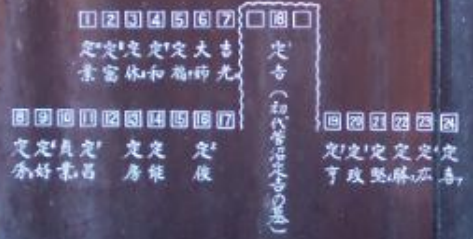 1 2 3 4 5 6 7
定業 定富 定休 定和 定福 大師 吉光
18
定吉(初代菅沼定吉の墓)
8 9 10 11 12 13 14 15 16 17
定好 員業 定昌 定房 定能 定俊
19 20 21 22 23 24
定亨 定政 定堅 定勝 定広 定喜